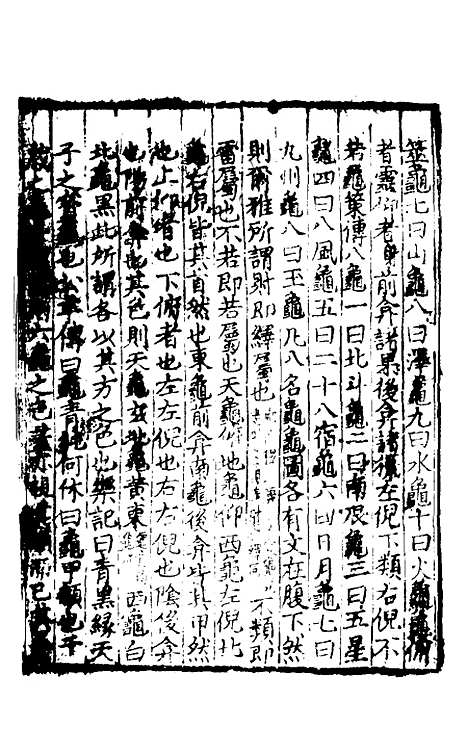 筮龜七曰山龜八曰澤龜九曰水龜十曰火龜
者靈仰者前弇諸果後弇諸獵左倪不類右倪不
若龜筴傳八龜一曰北斗龜二曰南辰龜三曰五星
龜四曰八風龜五曰二十八宿龜六曰日月龜七曰
九州龜八曰玉龜凡八名龜龜圖各有文在腹下然
則爾雅所謂射即繹屬也不類即
雷屬也不若即若屬也天龜俯地龜仰西龜左倪北
龜右倪皆其自然也東龜前弇南龜後弇皆其甲然
也上仰者也下俯者也左左倪也右右倪也陰後弇
也陽前弇也其色則天龜玄地龜黃東西龜白
北龜黑此所謂各以其方之色也樂記曰青黑緣天
子之寶龜也公羊傳曰龜青純何休曰龜甲也千
六龜之色